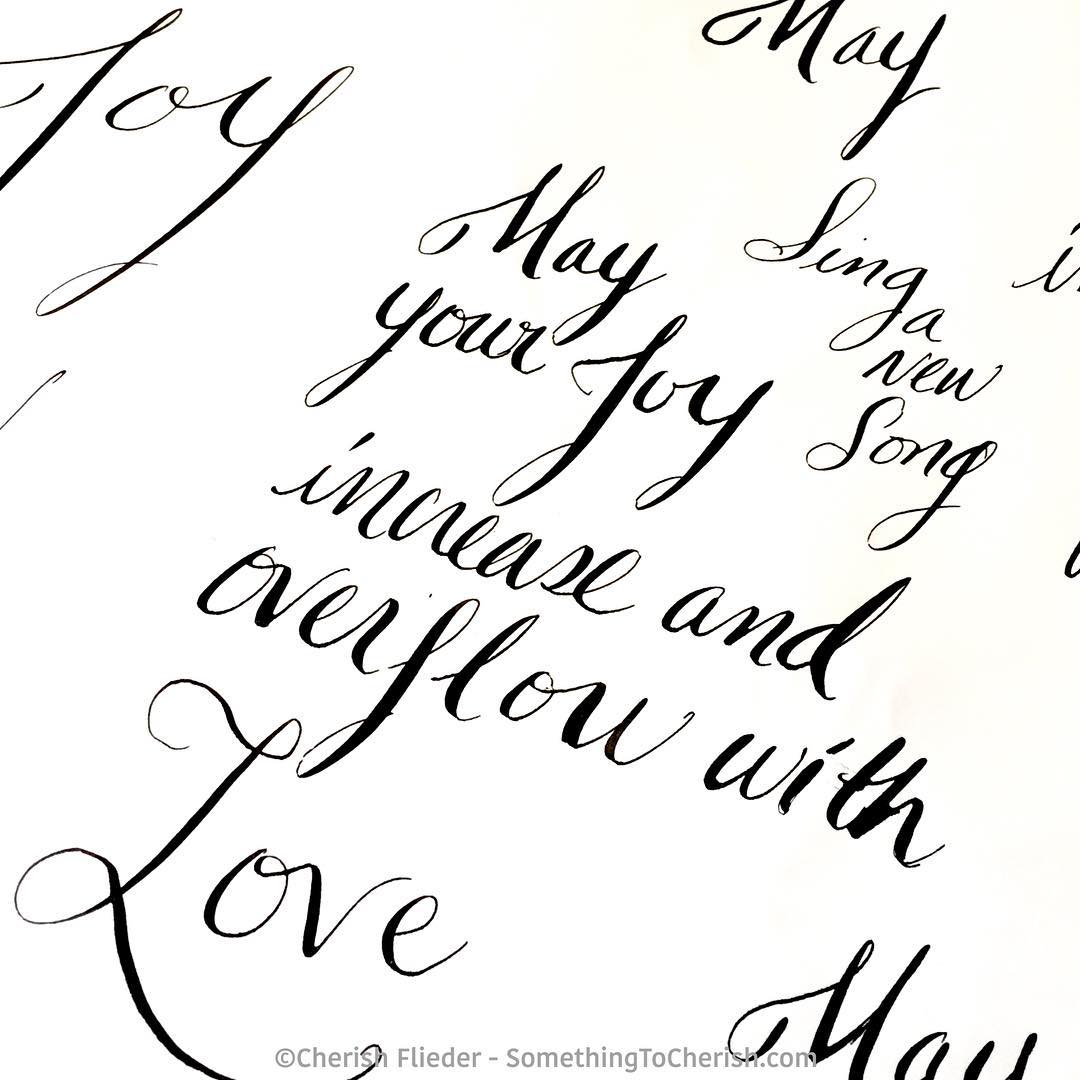 Joy
May
May
your Joy
increase and
overflow with
Love
Sing
a
new
Song
May
©Cherish Flieder - SomethingToCherish.com